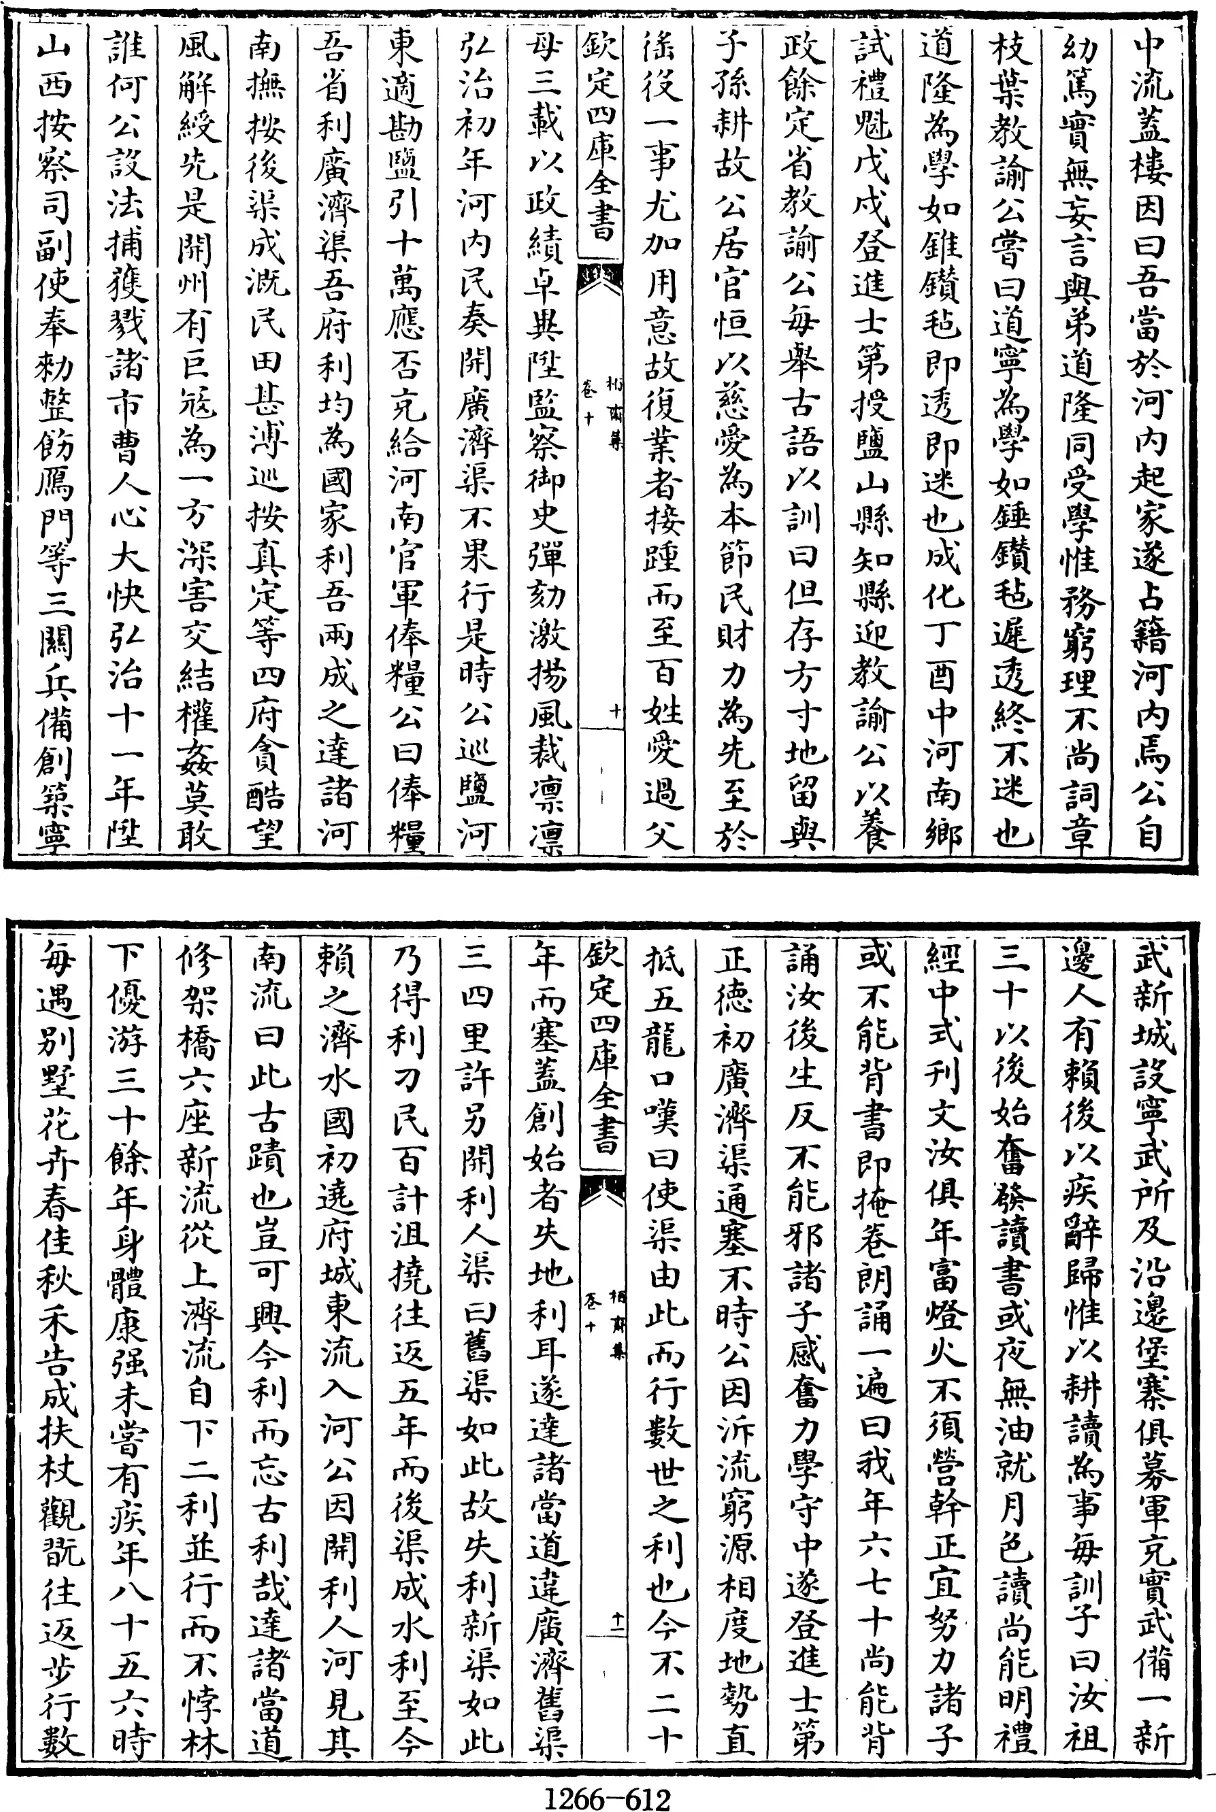 中流蓋樓因曰吾當於河内起家遂占籍河内焉公自
幼篤實無妄言與弟道隆同受學惟務窮理不尚詞章
枝葉教諭公嘗曰道寧為學如錘鑚毡遲透終不迷也
道隆為學如錐鑚毡即透即迷也成化丁酉中河南鄉
試禮魁戊戌登進士第授鹽山縣知縣迎教諭公以養
政餘定省教諭公每舉古語以訓曰但存方寸地留與
子孫耕故公居官恒以慈愛為本節民財力為先至於
徭役一事尤加用意故復業者接踵而至百姓愛過父
欽定四庫全書
柏齋集
卷十
十
母三載以政績卓異陞監察御史彈劾激揚風裁凛凛
弘治初年河内民奏開廣濟渠不果行是時公巡鹽河
東適勘鹽引十萬應否充給河南官軍俸糧公曰俸糧
吾省利廣濟渠吾府利均為國家利吾兩成之達諸河
南撫按後渠成溉民田甚溥巡按真定等四府貪酷望
風解綬先是開州有巨冦為一方深害交結權姦莫敢
誰何公設法捕獲戮諸市曹人心大快弘治十一年陞
山西按察司副使奉勑整飭鴈門等三關兵備創築寧
武新城設寧武所及沿邊堡寨俱募軍充實武備一新
邊人有賴後以疾辭歸惟以耕讀為事每訓子曰汝祖
三十以後始奮發讀書或夜無油就月色讀尚能明禮
經中式刊文汝俱年富燈火不須營幹正宜努力諸子
或不能背書即掩卷朗誦一遍曰我年六七十尚能背
誦汝後生反不能邪諸子感奮力學守中遂登進士第
正德初廣濟渠通塞不時公因泝流窮源相度地勢直
抵五龍口嘆曰使渠由此而行數世之利也今不二十
欽定四庫全書
柏齋集
卷十
十一
年而塞蓋創始者失地利耳遂達諸當道違廣濟舊渠
三四里許另開利人渠曰舊渠如此故失利新渠如此
乃得利刀民百計沮撓往返五年而後渠成水利至今
賴之濟水國初遶府城東流入河公因開利人河見其
南流曰此古蹟也豈可興今利而忘古利哉達諸當道
修架橋六座新流從上濟流自下二利並行而不悖林
下優游三十餘年身體康强未嘗有疾年八十五六時
每遇别墅花卉春佳秋禾告成扶杖觀翫往返步行數
1266-612